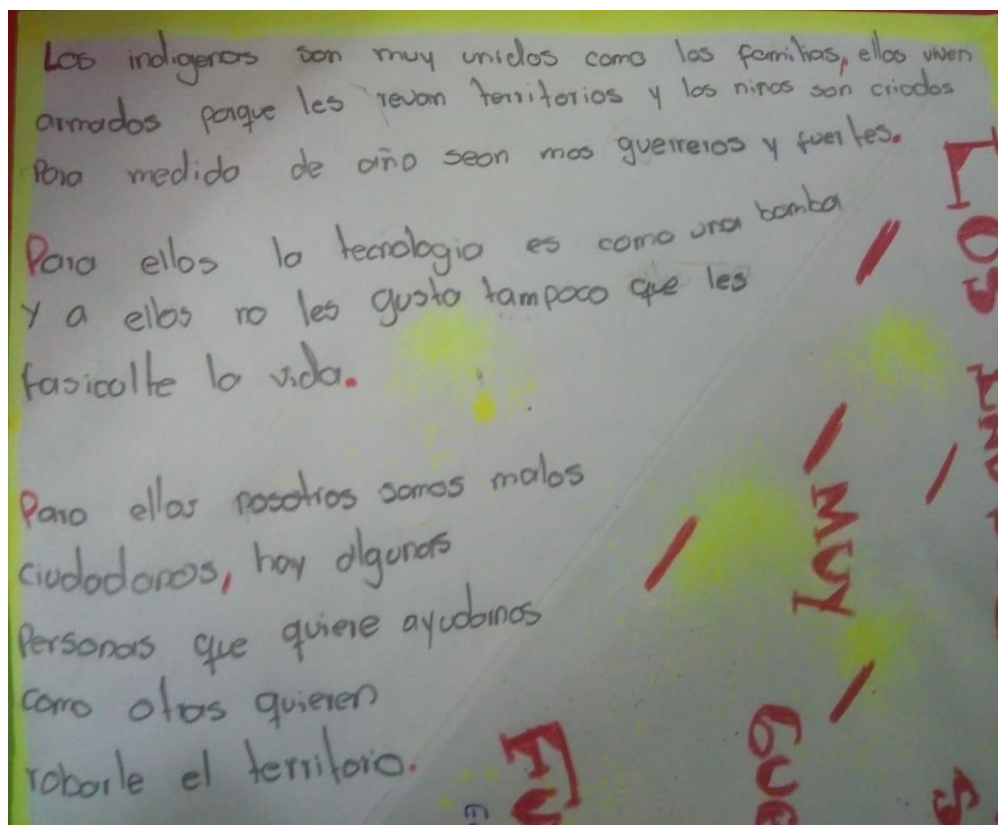 Los indigenas son muy unidos como las familias, ellos viven
armados porque les revan territorios y los ninos son criados
Para medida de año sean mas guerreros y fuertes.
Para ellos la tecnologia es como una bomba
y a ellos no les gusta tampoco que les
fasicolte la vida.
Para ellos nosotros somos malos
ciudadanos, hay algunas
Personas que quiere ayudarnos
como otras quieren
robarle el territorio.
LOS
MUY
GUE
FU
S